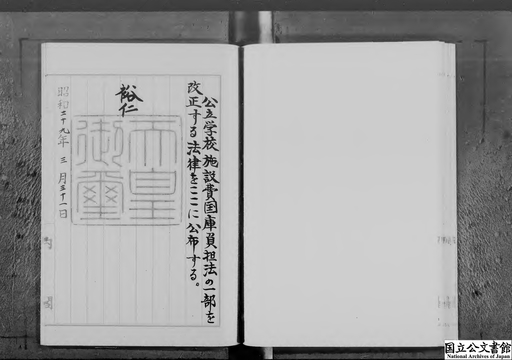 公立学校施設費国庫負担法の一部を
改正する法律をここに公布する。
裕仁
天皇
御璽
昭和二十九年三月三十一日
国立公文書館
National Archives of Japan